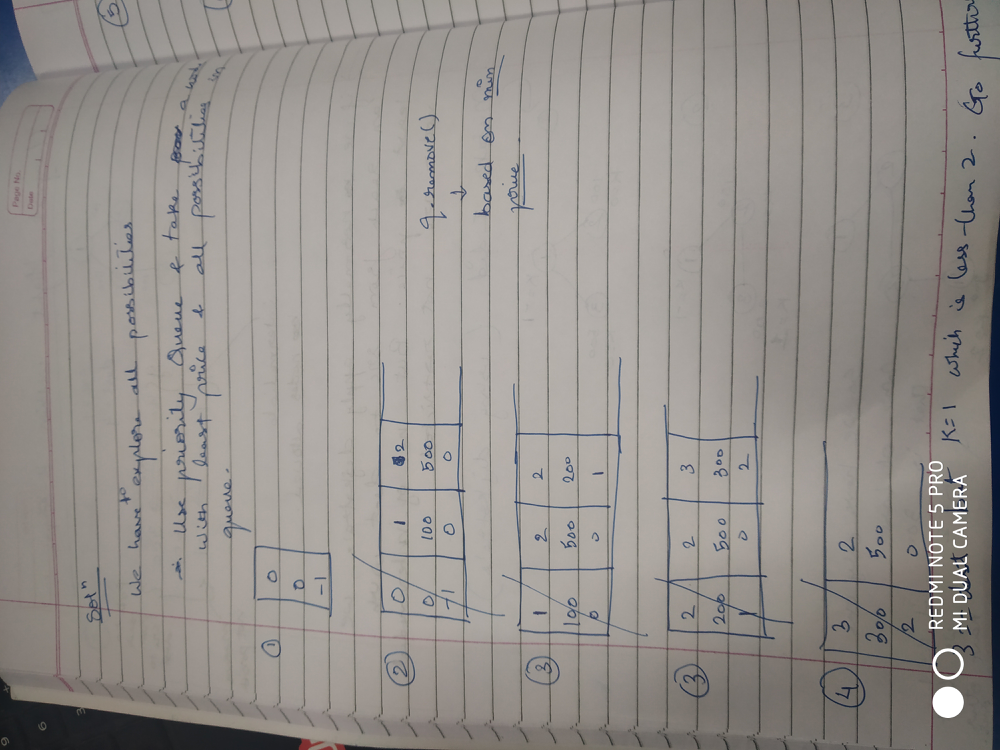 Page No.
Date
Solⁿ
We have to explore all possibilities
∴ Use priority Queue & take a
with least price & all possibilities in
queue.
① 0
0
-1
② 0 1 2
0 100 500
-1 0 0
q.remove()
↓
based on min
price
③ 1 2 2
100 500 200
0 0 1
③ 2 2 3
200 500 300
1 0 2
④ 3 2
300 500
2 0
3 K=1 which is less than 2. Go further
REDMI NOTE 5 PRO
MI DUAL CAMERA